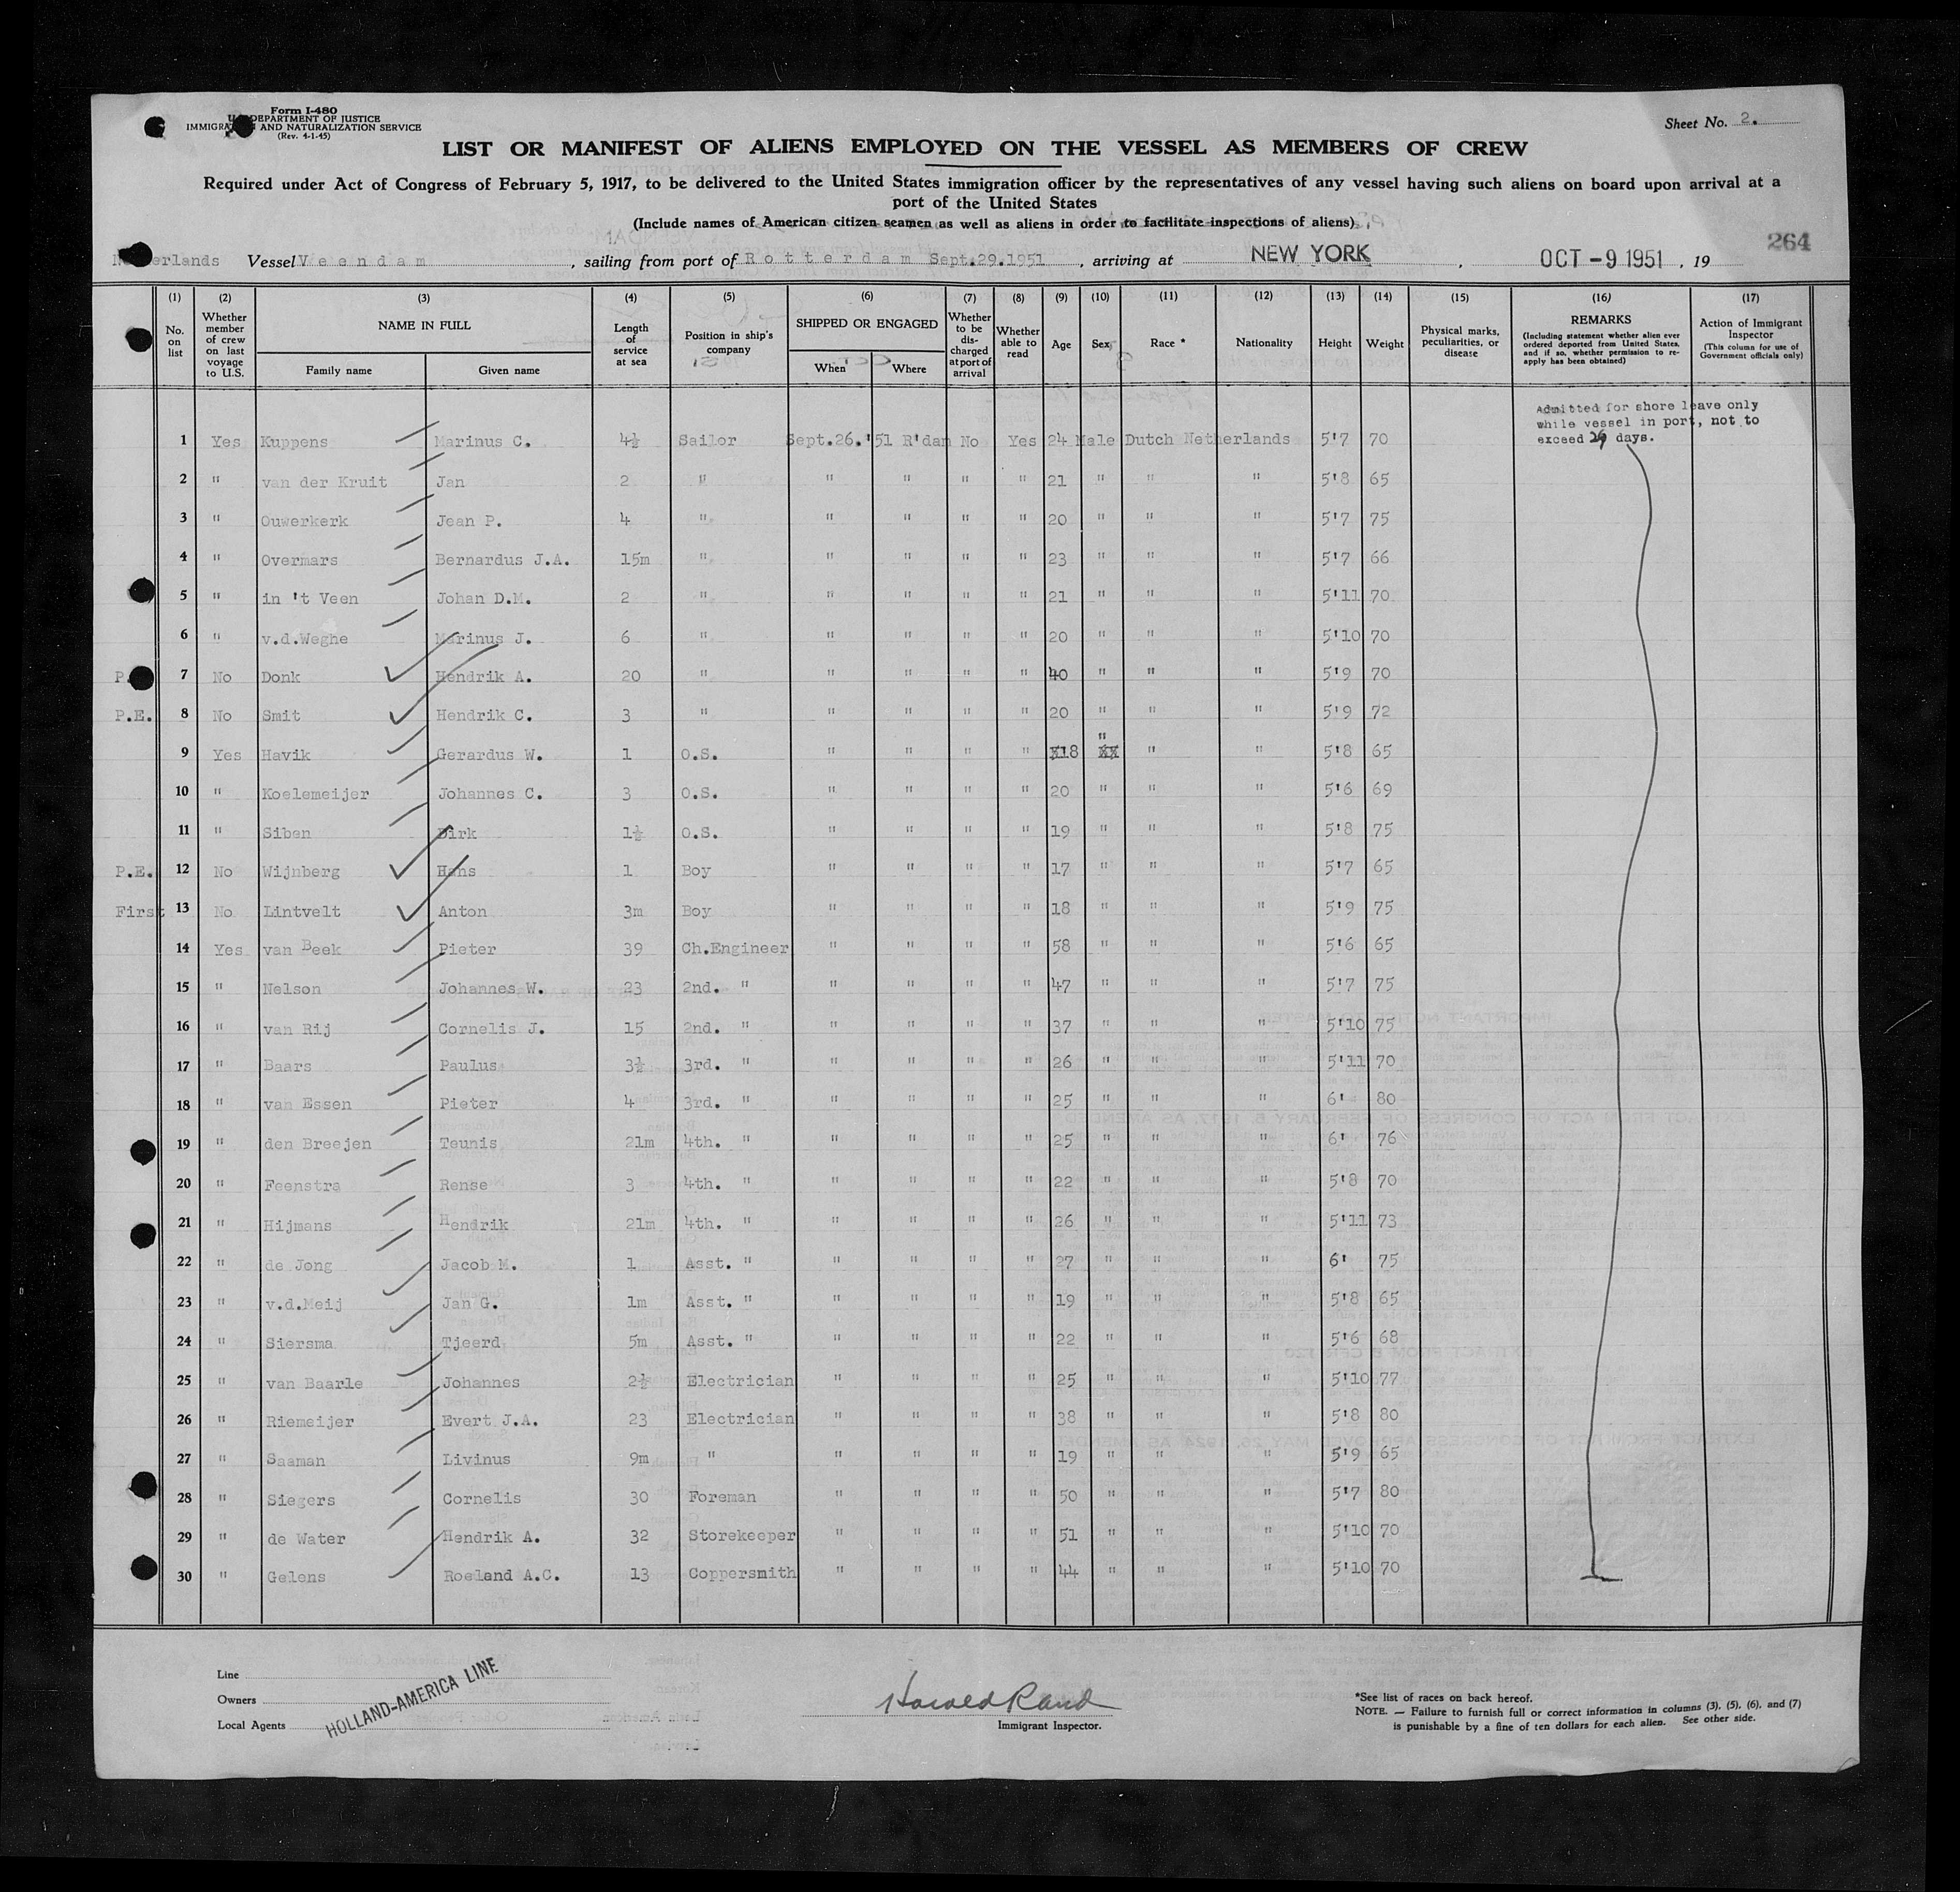 Form I-480
U. S. DEPARTMENT OF JUSTICE
IMMIGRATION AND NATURALIZATION SERVICE
(Rev. 4-1-45)
Sheet No. 2.
LIST OR MANIFEST OF ALIENS EMPLOYED ON THE VESSEL AS MEMBERS OF CREW
Required under Act of Congress of February 5, 1917, to be delivered to the United States immigration officer by the representatives of any vessel having such aliens on board upon arrival at a
port of the United States
(Include names of American citizen seamen as well as aliens in order to facilitate inspections of aliens)
264
Netherlands Vessel Veendam, sailing from port of Rotterdam Sept.29.1951, arriving at NEW YORK, OCT -9 1951, 19
(1) No. on list (2) Whether member of crew on last voyage to U.S. (3) NAME IN FULL Family name Given name (4) Length of service at sea (5) Position in ship's company (6) SHIPPED OR ENGAGED When Where (7) Whether to be discharged at port of arrival (8) Whether able to read (9) Age (10) Sex (11) Race * (12) Nationality (13) Height (14) Weight (15) Physical marks, peculiarities, or disease (16) REMARKS (Including statement whether alien ever ordered deported from United States, and if so, whether permission to re-apply has been obtained) (17) Action of Immigrant Inspector (This column for use of Government officials only)
Admitted for shore leave only
while vessel in port, not to
exceed 29 days.
1 Yes Kuppens Marinus C. 4½ Sailor Sept.26.'51 R'dam No Yes 24 Male Dutch Netherlands 5'7 70
2 " van der Kruit Jan 2 " " " " " 21 " " " 5'8 65
3 " Ouwerkerk Jean P. 4 " " " " " 20 " " " 5'7 75
4 " Overmars Bernardus J.A. 15m " " " " " 23 " " " 5'7 66
5 " in 't Veen Johan D.M. 2 " " " " " 21 " " " 5'11 70
6 " v.d.Weghe Marinus J. 6 " " " " " 20 " " " 5'10 70
P. 7 No Donk Hendrik A. 20 " " " " " 40 " " " 5'9 70
P.E. 8 No Smit Hendrik C. 3 " " " " " 20 " " " 5'9 72
9 Yes Havik Gerardus W. 1 O.S. " " " " 18 " " " 5'8 65
10 " Koelemeijer Johannes C. 3 O.S. " " " " 20 " " " 5'6 69
11 " Siben Dirk 1½ O.S. " " " " 19 " " " 5'8 75
P.E. 12 No Wijnberg Hans 1 Boy " " " " 17 " " " 5'7 65
First 13 No Lintvelt Anton 3m Boy " " " " 18 " " " 5'9 75
14 Yes van Beek Pieter 39 Ch.Engineer " " " " 58 " " " 5'6 65
15 " Nelson Johannes W. 23 2nd. " " " " " 47 " " " 5'7 75
16 " van Rij Cornelis J. 15 2nd. " " " " " 37 " " " 5'10 75
17 " Baars Paulus 3½ 3rd. " " " " " 26 " " " 5'11 70
18 " van Essen Pieter 4 3rd. " " " " " 25 " " " 6' 80
19 " den Breejen Teunis 21m 4th. " " " " " 25 " " " 6' 76
20 " Feenstra Rense 3 4th. " " " " " 22 " " " 5'8 70
21 " Hijmans Hendrik 21m 4th. " " " " " 26 " " " 5'11 73
22 " de Jong Jacob M. 1 Asst. " " " " " 27 " " " 6' 75
23 " v.d.Meij Jan G. 1m Asst. " " " " " 19 " " " 5'8 65
24 " Siersma Tjeerd 5m Asst. " " " " " 22 " " " 5'6 68
25 " van Baarle Johannes 2½ Electrician " " " " 25 " " " 5'10 77
26 " Riemeijer Evert J.A. 23 Electrician " " " " 38 " " " 5'8 80
27 " Saaman Livinus 9m " " " " " 19 " " " 5'9 65
28 " Siegers Cornelis 30 Foreman " " " " 50 " " " 5'7 80
29 " de Water Hendrik A. 32 Storekeeper " " " " 51 " " " 5'10 70
30 " Gelens Roeland A.C. 13 Coppersmith " " " " 44 " " " 5'10 70
Line
Owners
Local Agents
HOLLAND-AMERICA LINE
Harold Rand
Immigrant Inspector.
*See list of races on back hereof.
NOTE. — Failure to furnish full or correct information in columns (3), (5), (6), and (7)
is punishable by a fine of ten dollars for each alien. See other side.